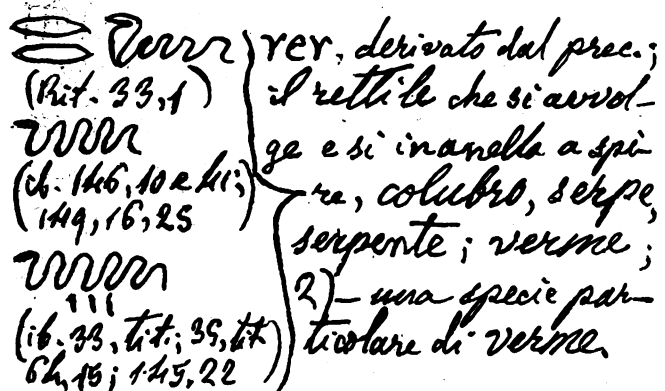 (Rit. 33, 1)
(ib. 146, 10
149, 16, 25
(ib. 33, tit.; 35, tit
64, 15; 145, 22
rer, derivato dal prec.;
il rettile che si avvol-
ge e si inanella a spi-
re, colubro, serpe,
serpente; verme;
2) – una specie par-
ticolare di verme.